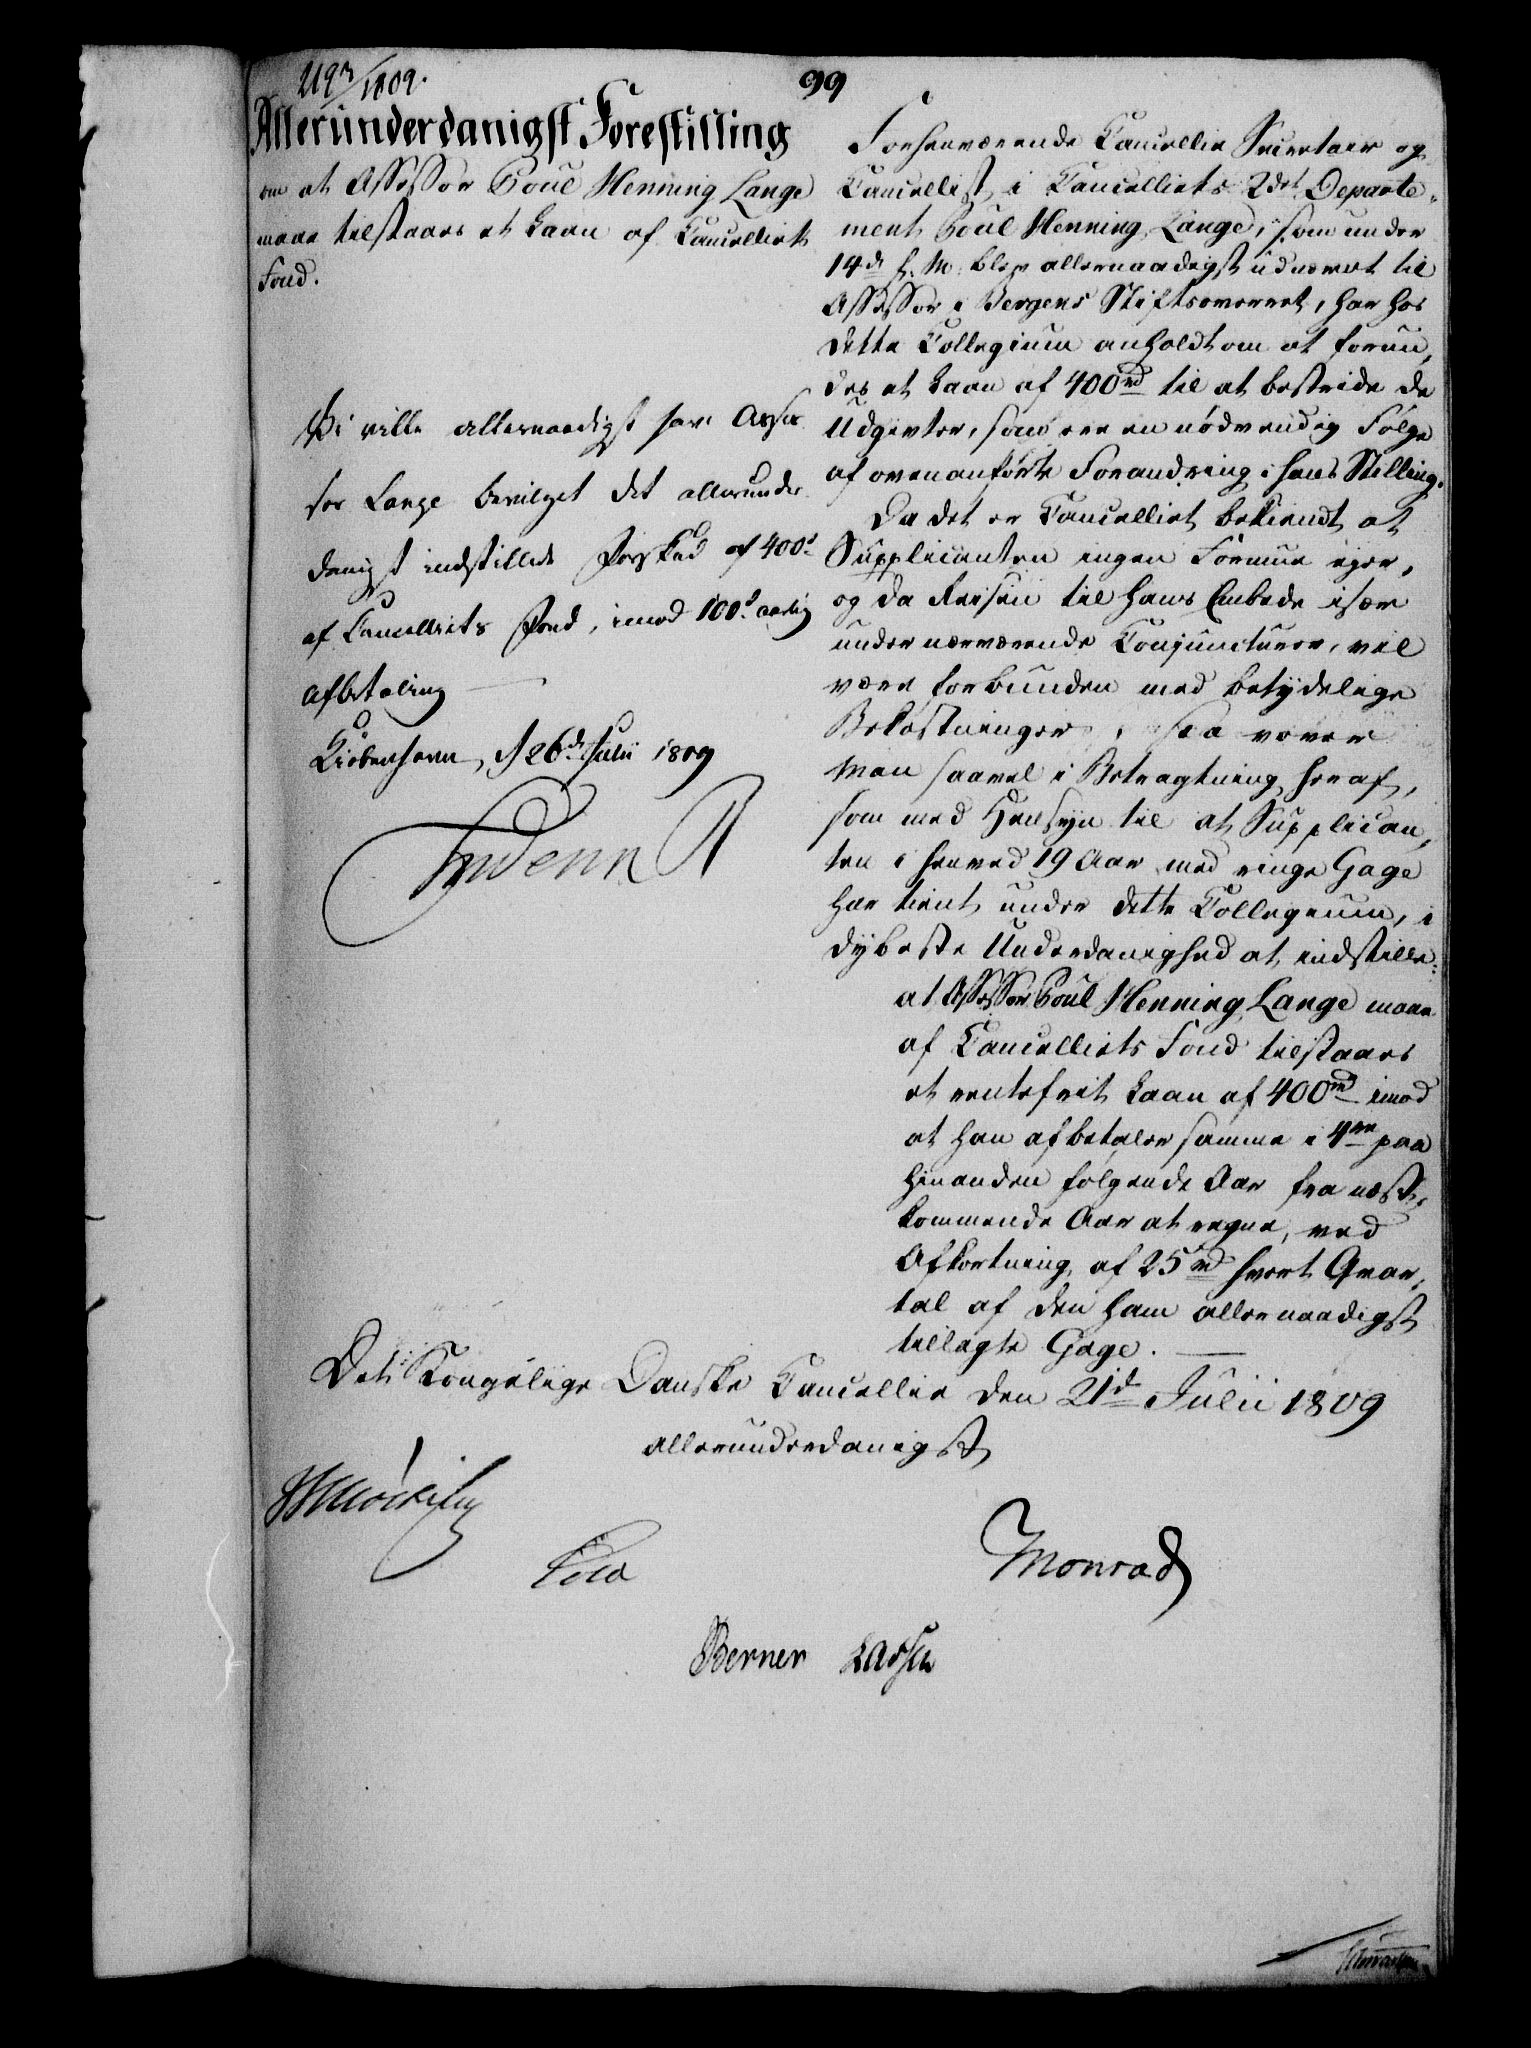 2193/1809.
99
Allerunderdanigst Forestilling
om at Assessor Poul Henning Lange
maae tilstaaes et Laan af Cancelliets
Fond.
Vi ville allernaadigst have Asses
sor Lange bevilget det allerunder
danigst indstillede Forskud af 400d
af Cancelliets Fond, imod 100d aarlig
Afbetaling
Kiøbenhavn, d 26d Julii 1809
Frideric R
Forhenværende Cancellie Secretair og
Cancellist i Cancelliets 2det Departe-
ment Poul Henning Lange, som under
14de h. M. blev allernaadigst udnævnt til
Assessor i Bergens Stiftsoverret, har hos
dette Collegium anholdt om at forun-
des et Laan af 400rd til at bestride de
Udgivter, som ere en nødvendig Følge
af ovenanførte Forandring i hans Stilling.
Da det er Cancelliet bekiendt at
Supplicanten ingen Formue ejer,
og da Reisen til hans Embede især
under nærværende Conjuncturer, vil
være forbunden med betydelige
Bekostninger, saa vover
man saavel i Betragtning heraf,
som med Hensyn til at Supplican-
ten i henved 19 Aar med ringe Gage
har tient under dette Collegium, i
dybeste Underdanighed at indstille:
at Assessor Poul Henning Lange maae
af Cancelliets Fond tilstaaes
et rentefrit Laan af 400rd imod
at han afbetaler samme i 4re paa
hinanden følgende Aar fra næst-
kommende Aar at regne, ved
Afkortning af 25rd hvert Qvar-
tal af den ham allernaadigst
tillagte Gage.
Det Kongelige Danske Cancellie den 21d Julii 1809
allerunderdanigst
Cold
Monrad
Berner Lassen